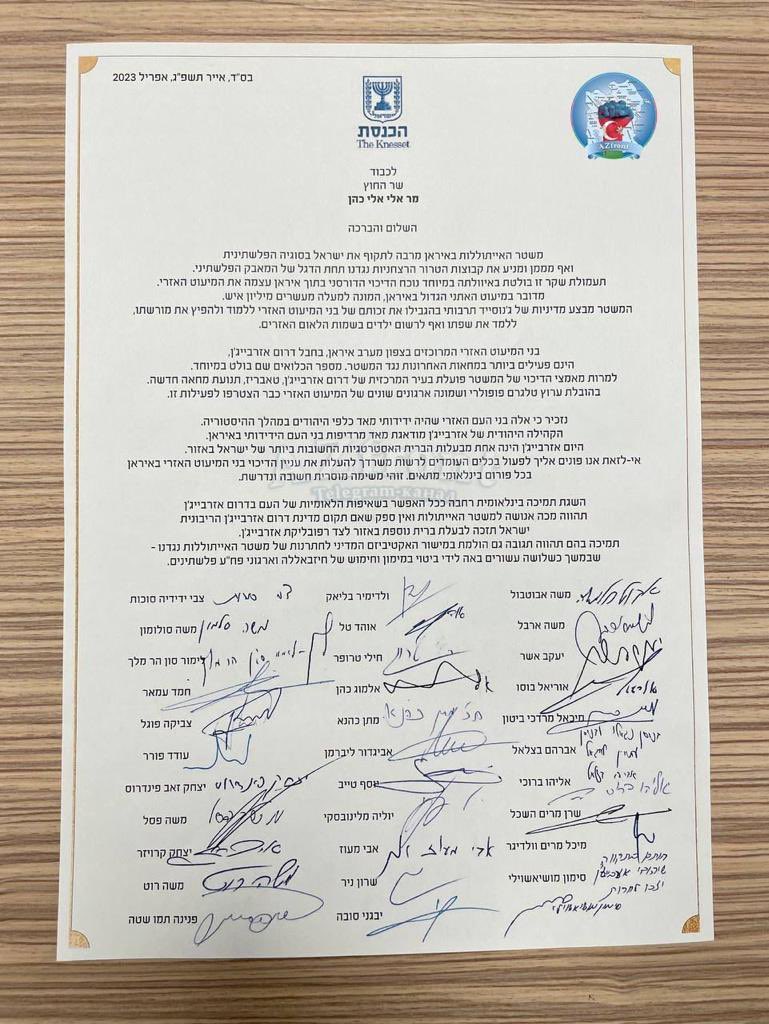 בס"ד, אייר תשפ"ג, אפריל 2023
הכנסת
The Knesset
AZfront
לכבוד
שר החוץ
מר אלי אלי כהן
השלום והברכה
משטר האייתוללות באיראן מרבה לתקוף את ישראל בסוגיה הפלשתינית
ואף מממן ומניע את קבוצות הטרור הרצחניות נגדנו תחת הדגל של המאבק הפלשתיני.
תעמולת שקר זו בולטת באיוולתה במיוחד נוכח הדיכוי הדורסני בתוך איראן עצמה את המיעוט האזרי.
מדובר במיעוט האתני הגדול באיראן, המונה למעלה מעשרים מיליון איש.
המשטר מבצע מדיניות של ג'נוסייד תרבותי בהגבילו את זכותם של בני המיעוט האזרי ללמוד ולהפיץ את מורשתו,
ללמד את שפתו ואף לרשום ילדים בשמות הלאום האזרים.
בני המיעוט האזרי המרוכזים בצפון מערב איראן, בחבל דרום אזרבייג'ן,
הינם פעילים ביותר במחאות האחרונות נגד המשטר. מספר הכלואים שם בולט במיוחד.
למרות מאמצי הדיכוי של המשטר פועלת בעיר המרכזית של דרום אזרבייג'ן, טאבריז, תנועת מחאה חדשה.
בהובלת ערוץ טלגרם פופולרי ושמונה ארגונים שונים של המיעוט האזרי כבר הצטרפו לפעילות זו.
נזכיר כי אלה בני העם האזרי שהיה ידידותי מאד כלפי היהודים במהלך ההיסטוריה.
הקהילה היהודית של אזרבייג'ן מודאגת מאד מרדיפות בני העם הידידותי באיראן.
היום אזרבייג'ן הינה אחת מבעלות הברית האסטרטגיות החשובות ביותר של ישראל באזור.
אי-לזאת אנו פונים אליך לפעול בכלים העומדים לרשות משרדך להעלות את עניין הדיכוי בני המיעוט האזרי באיראן
בכל פורום בינלאומי מתאים. זוהי משימה מוסרית חשובה ונדרשת.
Telegram-канал
השגת תמיכה בינלאומית רחבה ככל האפשר בשאיפות הלאומיות של העם בדרום אזרבייג'ן
תהווה מכה אנושה למשטר האייתולות ואין ספק שאם תקום מדינת דרום אזרבייג'ן הריבונית
ישראל תזכה לבעלת ברית נוספת באזור לצד רפובליקת אזרבייג'ן.
תמיכה בהם תהווה תגובה גם הולמת במישור האקטיביזם המדיני לחתרנות של משטר האייתוללות נגדנו -
שבמשך כשלושה עשורים באה לידי ביטוי במימון וחימוש של חיזבאללה וארגוני פח"ע פלשתינים.
משה אבוטבול ולדימיר בליאק צבי ידידיה סוכות
משה ארבל אוהד טל משה סולומון
יעקב אשר חילי טרופר לימור סון הר מלך
אוריאל בוסו אלמוג כהן חמד עמאר
מיכאל מרדכי ביטון מתן כהנא צביקה פוגל
אברהם בצלאל אביגדור ליברמן עודד פורר
אליהו ברוכי יוסף טייב יצחק זאב פינדרוס
שרן מרים השכל יוליה מלינובסקי משה פסל
מיכל מרים וולדיגר אבי מעוז יצחק קרויזר
סימון מושיאשוילי שרון ניר משה רוט
יבגני סובה פנינה תמנו שטה